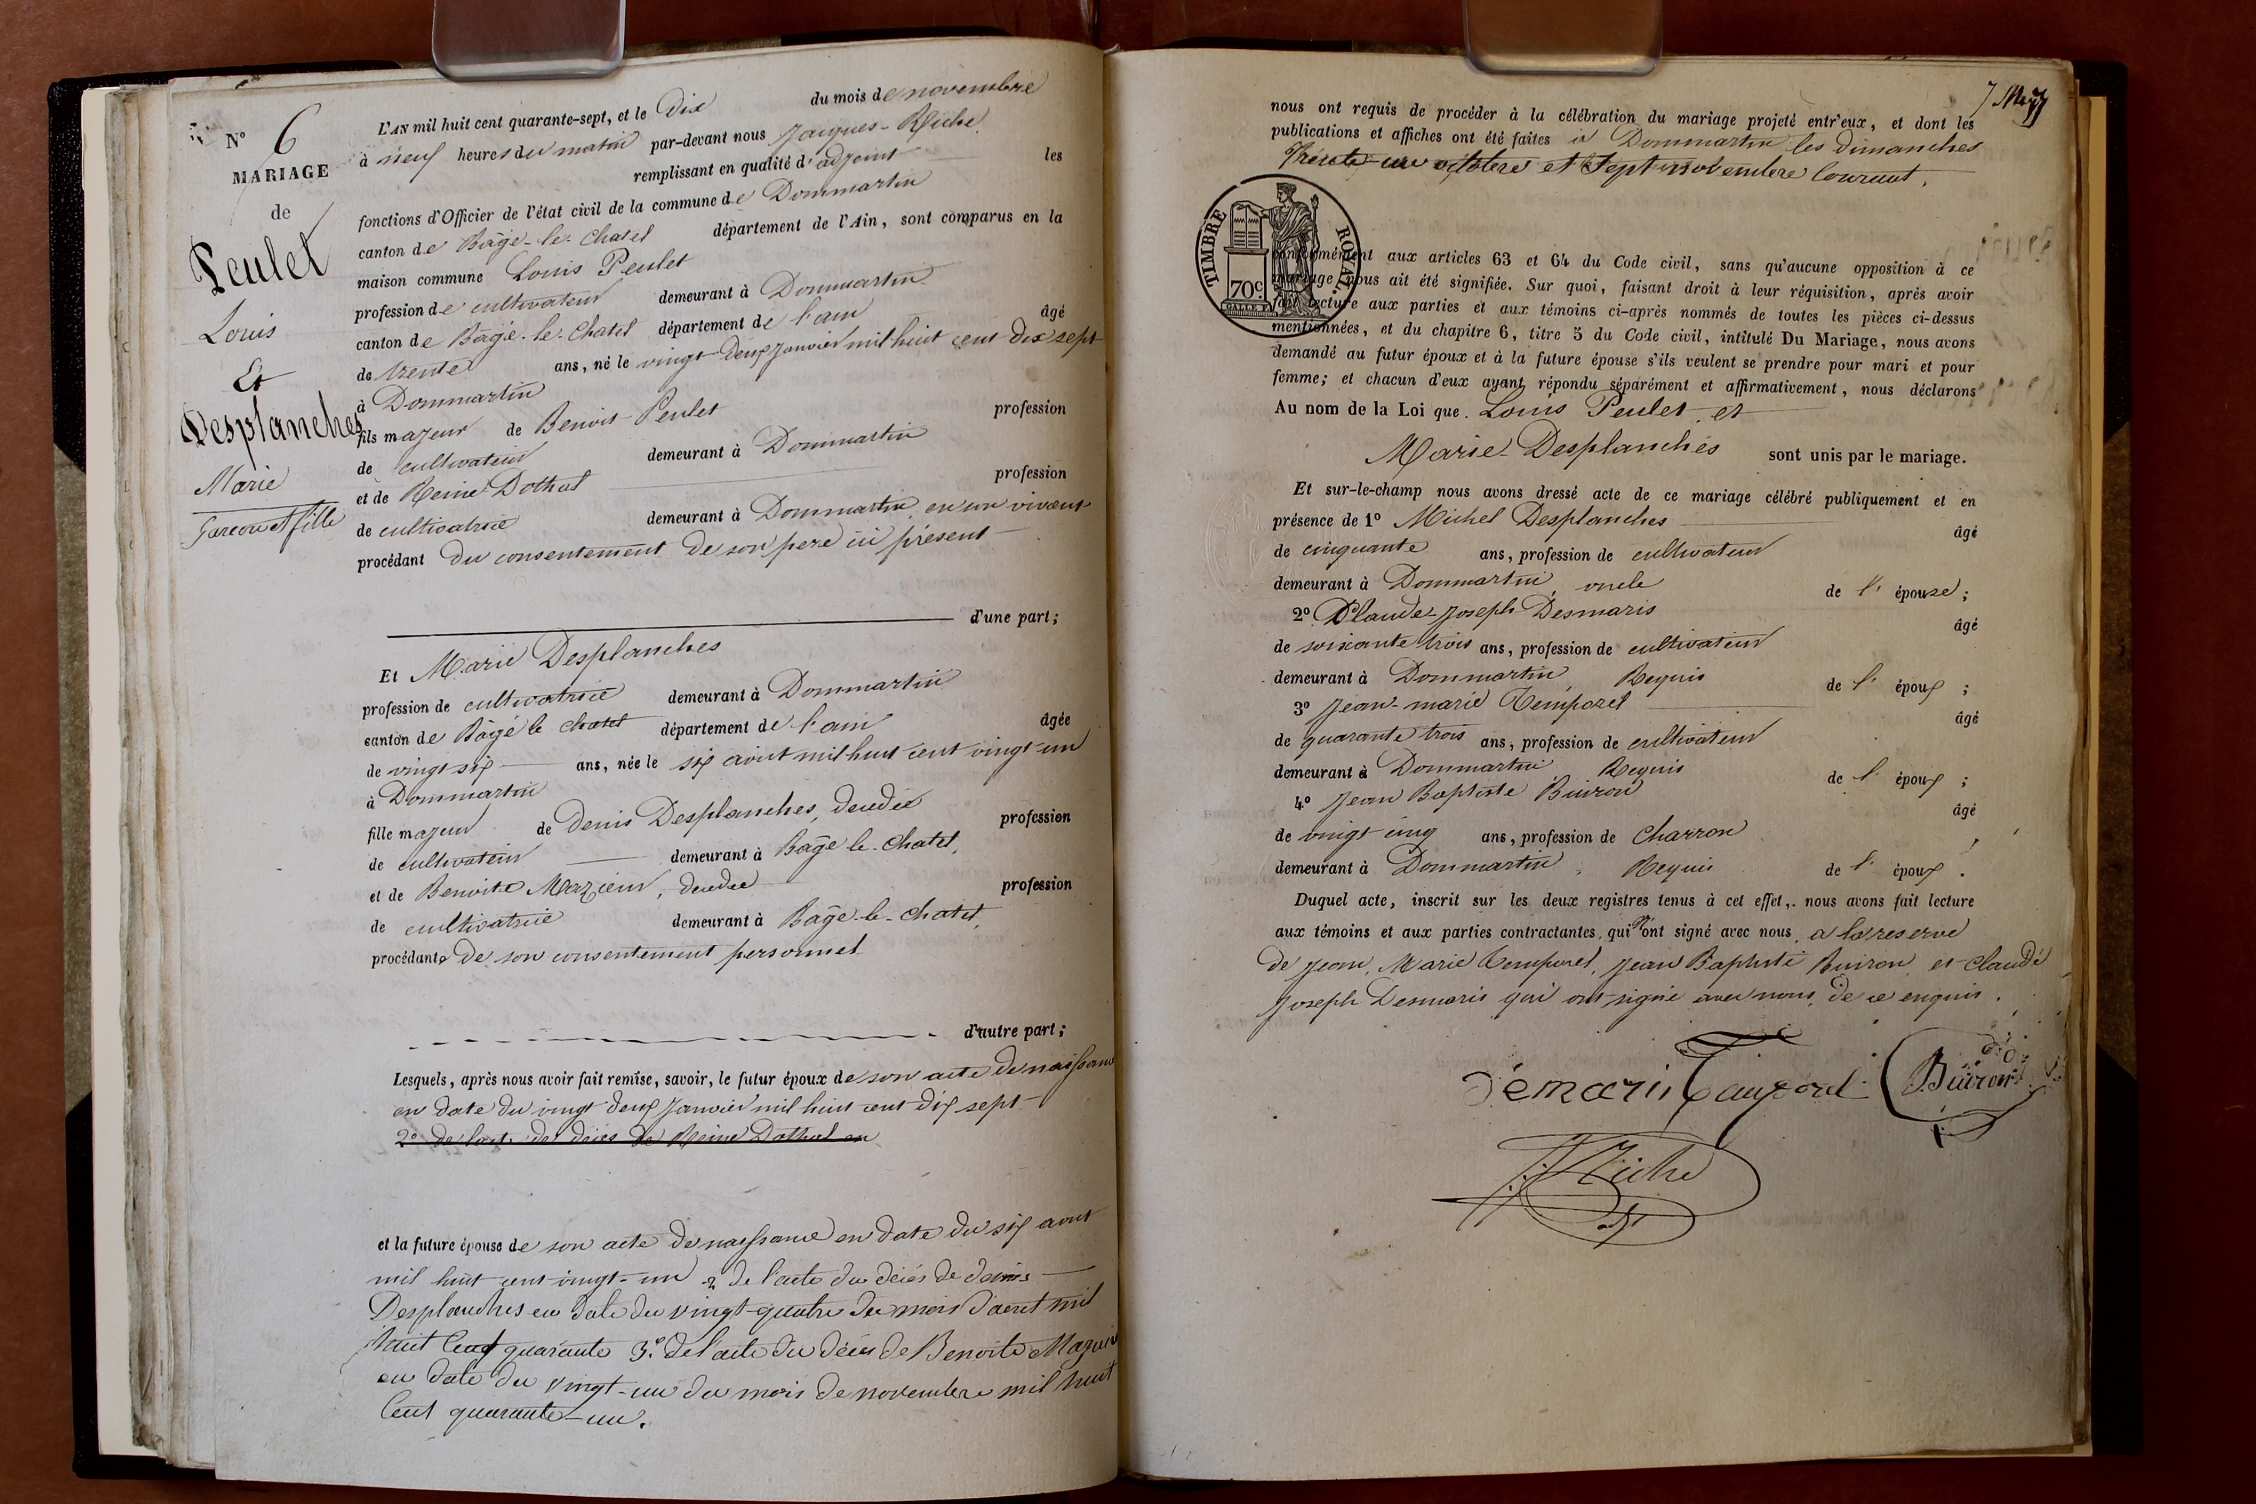 N° 6
MARIAGE
de
Peulet
Louis
Et
Desplanches
Marie
Garcon et fille
L'AN mil huit cent quarante-sept, et le Dix du mois de novembre
à neuf heures du matin par-devant nous Jacques Riche
remplissant en qualité d'adjoint les
fonctions d'Officier de l'état civil de la commune de Dommartin
canton de Bâgé-le-Chatel département de l'Ain, sont comparus en la
maison commune Louis Peulet
profession de cultivateur demeurant à Dommartin
canton de Bâgé-le-Chatel département de l'ain âgé
de trente ans, né le vingt deux janvier mil huit cent dix sept
à Dommartin
fils majeur de Benoit Peulet profession
de cultivateur demeurant à Dommartin
et de Reine Dothal profession
de cultivatrice demeurant à Dommartin en son vivant
procédant du consentement de son père ici présent
d'une part;
Et Marie Desplanches
profession de cultivatrice demeurant à Dommartin
canton de Bâgé le chatel département de l'ain âgée
de vingt six ans, née le six aout mil huit cent vingt-un
à Dommartin
fille majeur de Denis Desplanches, décédé profession
de cultivateur demeurant à Bâgé le-Chatel,
et de Benoite Mazuir, décédée profession
de cultivatrice demeurant à Bâgé-le-Chatel,
procédante de son consentement personnel
d'autre part;
Lesquels, après nous avoir fait remise, savoir, le futur époux de son acte de naissance
en date du vingt deux janvier mil huit cent dix sept
2° de l'act. de décès de Reine Dothal en
et la future épouse de son acte de naissance en date du six aout
mil huit cent vingt-un 2 de l'acte du décès de denis
Desplanches en date du vingt-quatre du mois d'aout mil
huit Cent quarante 3.° de l'acte du décès de Benoite Mazuir
en date du vingt-un du mois de novembre mil huit
Cent quarante-un.
nous ont requis de procéder à la célébration du mariage projeté entr'eux, et dont les
publications et affiches ont été faites à Dommartin les dimanches
Trente-un octobre et Sept novembre Courant.
TIMBRE ROYAL.
70c.
conformément aux articles 63 et 64 du Code civil, sans qu'aucune opposition à ce
mariage nous ait été signifiée. Sur quoi, faisant droit à leur réquisition, après avoir
fait lecture aux parties et aux témoins ci-après nommés de toutes les pièces ci-dessus
mentionnées, et du chapitre 6, titre 5 du Code civil, intitulé Du Mariage, nous avons
demandé au futur époux et à la future épouse s'ils veulent se prendre pour mari et pour
femme; et chacun d'eux ayant répondu séparément et affirmativement, nous déclarons
Au nom de la Loi que Louis Peulet et
Marie Desplanches sont unis par le mariage.
Et sur-le-champ nous avons dressé acte de ce mariage célébré publiquement et en
présence de 1° Michel Desplanches âgé
de cinquante ans, profession de cultivateur
demeurant à Dommartin, oncle de l' épouse;
2° Claude-Joseph Desmaris âgé
de soixante trois ans, profession de cultivateur
demeurant à Dommartin, Requis de l' époux;
3° Jean-marie Temporel âgé
de quarante trois ans, profession de cultivateur
demeurant à Dommartin Requis de l' époux;
4° Jean Baptiste Buiron âgé
de vingt cinq ans, profession de Charron
demeurant à Dommartin, Requis de l' époux.
Duquel acte, inscrit sur les deux registres tenus à cet effet, nous avons fait lecture
aux témoins et aux parties contractantes, qui n'ont signé avec nous, a la reserve
de Jean, Marie Temporel, Jean Baptiste Buiron et Claude
Joseph Desmaris qui ont signé avec nous de ce enquis.
Démaris Tamporel Buiron
J. Riche